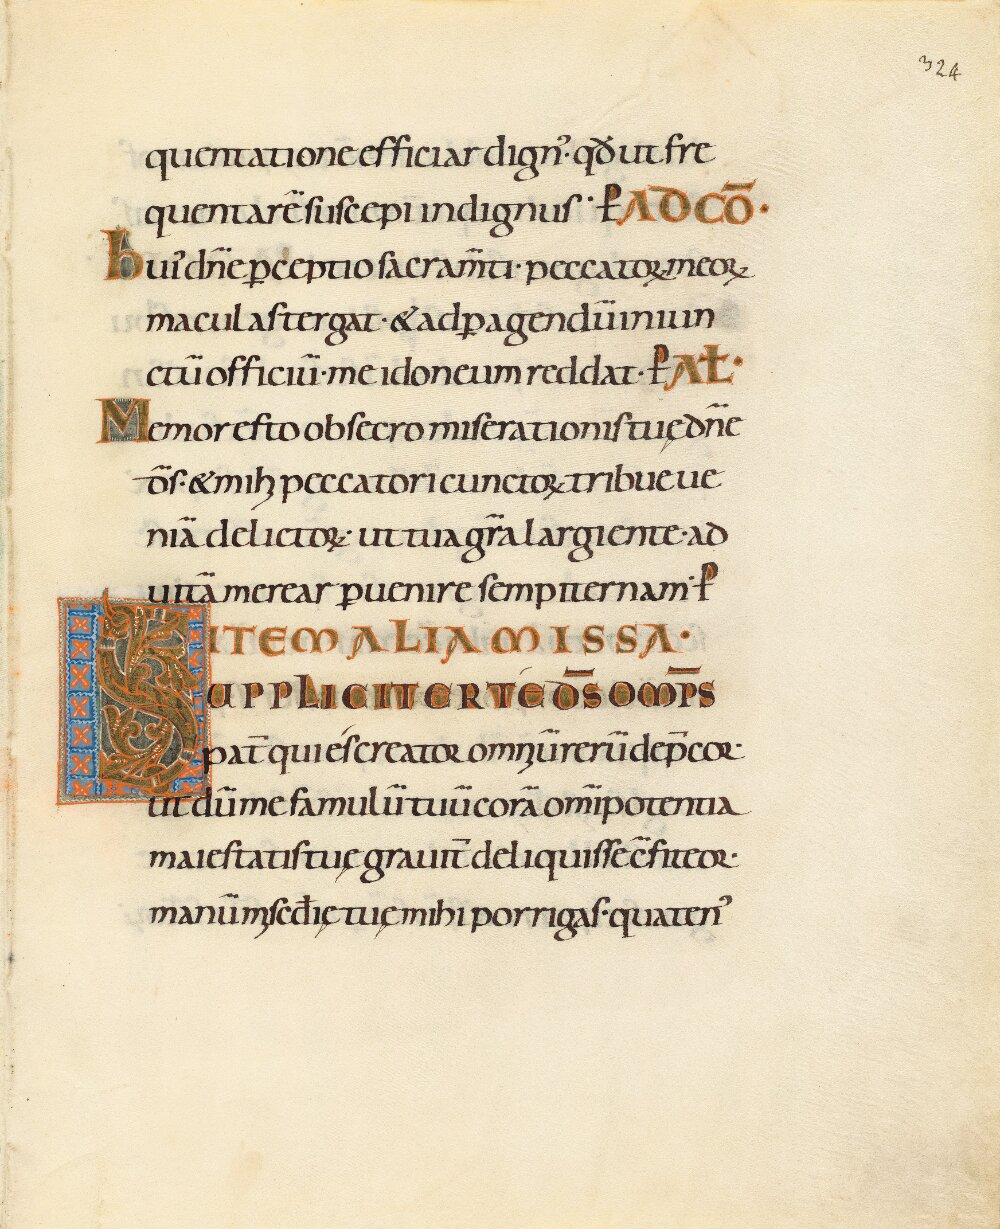 324
quentatione efficiar dign᾽· qđ ut fre
quentarē suscepi indignus· ꝑ AD CŌ·
huī dn̄e ꝑceptio sacram̄ti· peccatoꝝ meoꝝ
maculas tergat· & ad ꝑagendū iniun
ctū officiū· me idoneum reddat· ꝑ AŁ·
Memor esto obsecro miserationis tuę dn̄e
ōs· & mih peccatori cunctoꝝ tribue ue
niā delictoꝝ· ut tua gr̄a largiente· ad
uitā merear ꝑuenire sempiternam· ꝑ
ITEM ALIA MISSA·
SUPPLICITER TE D̄S OMP̄S
pat̄ qui es creator omniū rerū dep̄cor·
ut dū me famulū tuū corā om̄ipotentia
maiestatis tuę grauit̄ deliquisse c̄fiteor·
manū mis̄cđię tuę mihi porrigas· quaten᾽